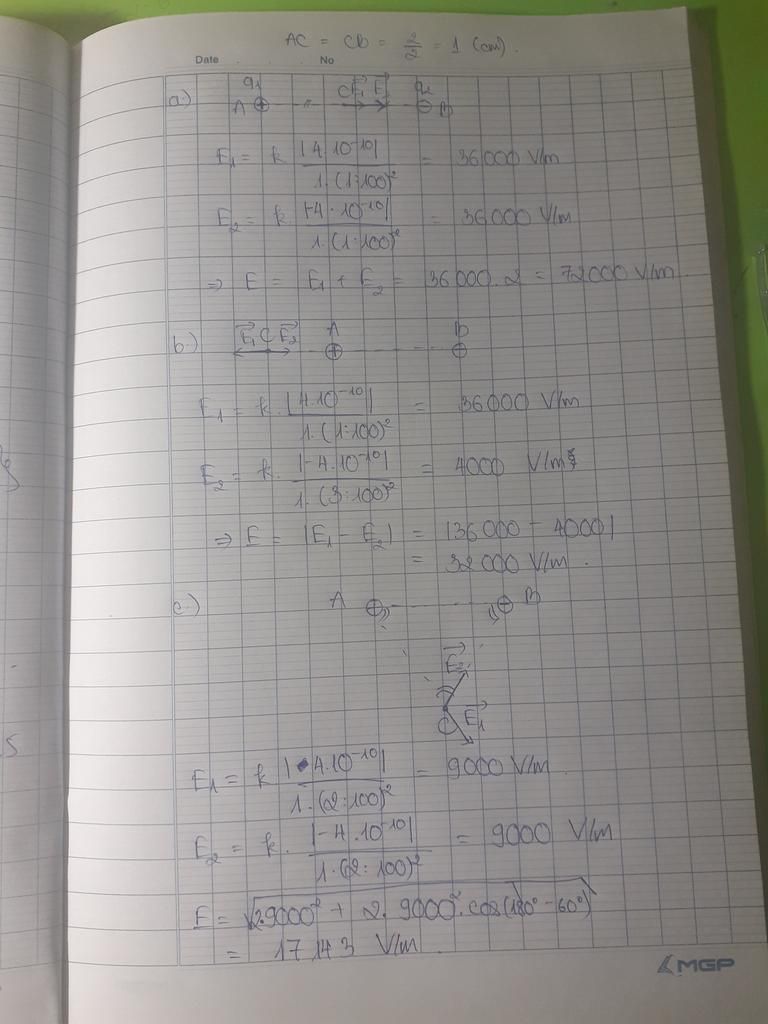 AC = CB = 2/2 = 1 (cm).
Date No
a.) A q1 ⊕ C E1 E2 q2 ⊖ B
E1 = k |4.10^-10| / 1.(1:100)^2 = 36000 V/m
E2 = k. |-4.10^-10| / 1.(1:100)^2 = 36000 V/m
⇒ E = E1 + E2 = 36000.2 = 72000 V/m
b.) E1 C E2 A B
E1 = k. |4.10^-10| / 1.(1:100)^2 = 36000 V/m
E2 = k. |-4.10^-10| / 1.(3:100)^2 = 4000 V/m
⇒ E = |E1 - E2| = |36000 - 4000|
= 32000 V/m.
c.) A B
E2
C E1
E1 = k |4.10^-10| / 1.(2:100)^2 = 9000 V/m
E2 = k. |-4.10^-10| / 1.(2:100)^2 = 9000 V/m
E = √(2.9000^2 + 2.9000^2.cos(180° - 60°))
= 17143 V/m.
MGP